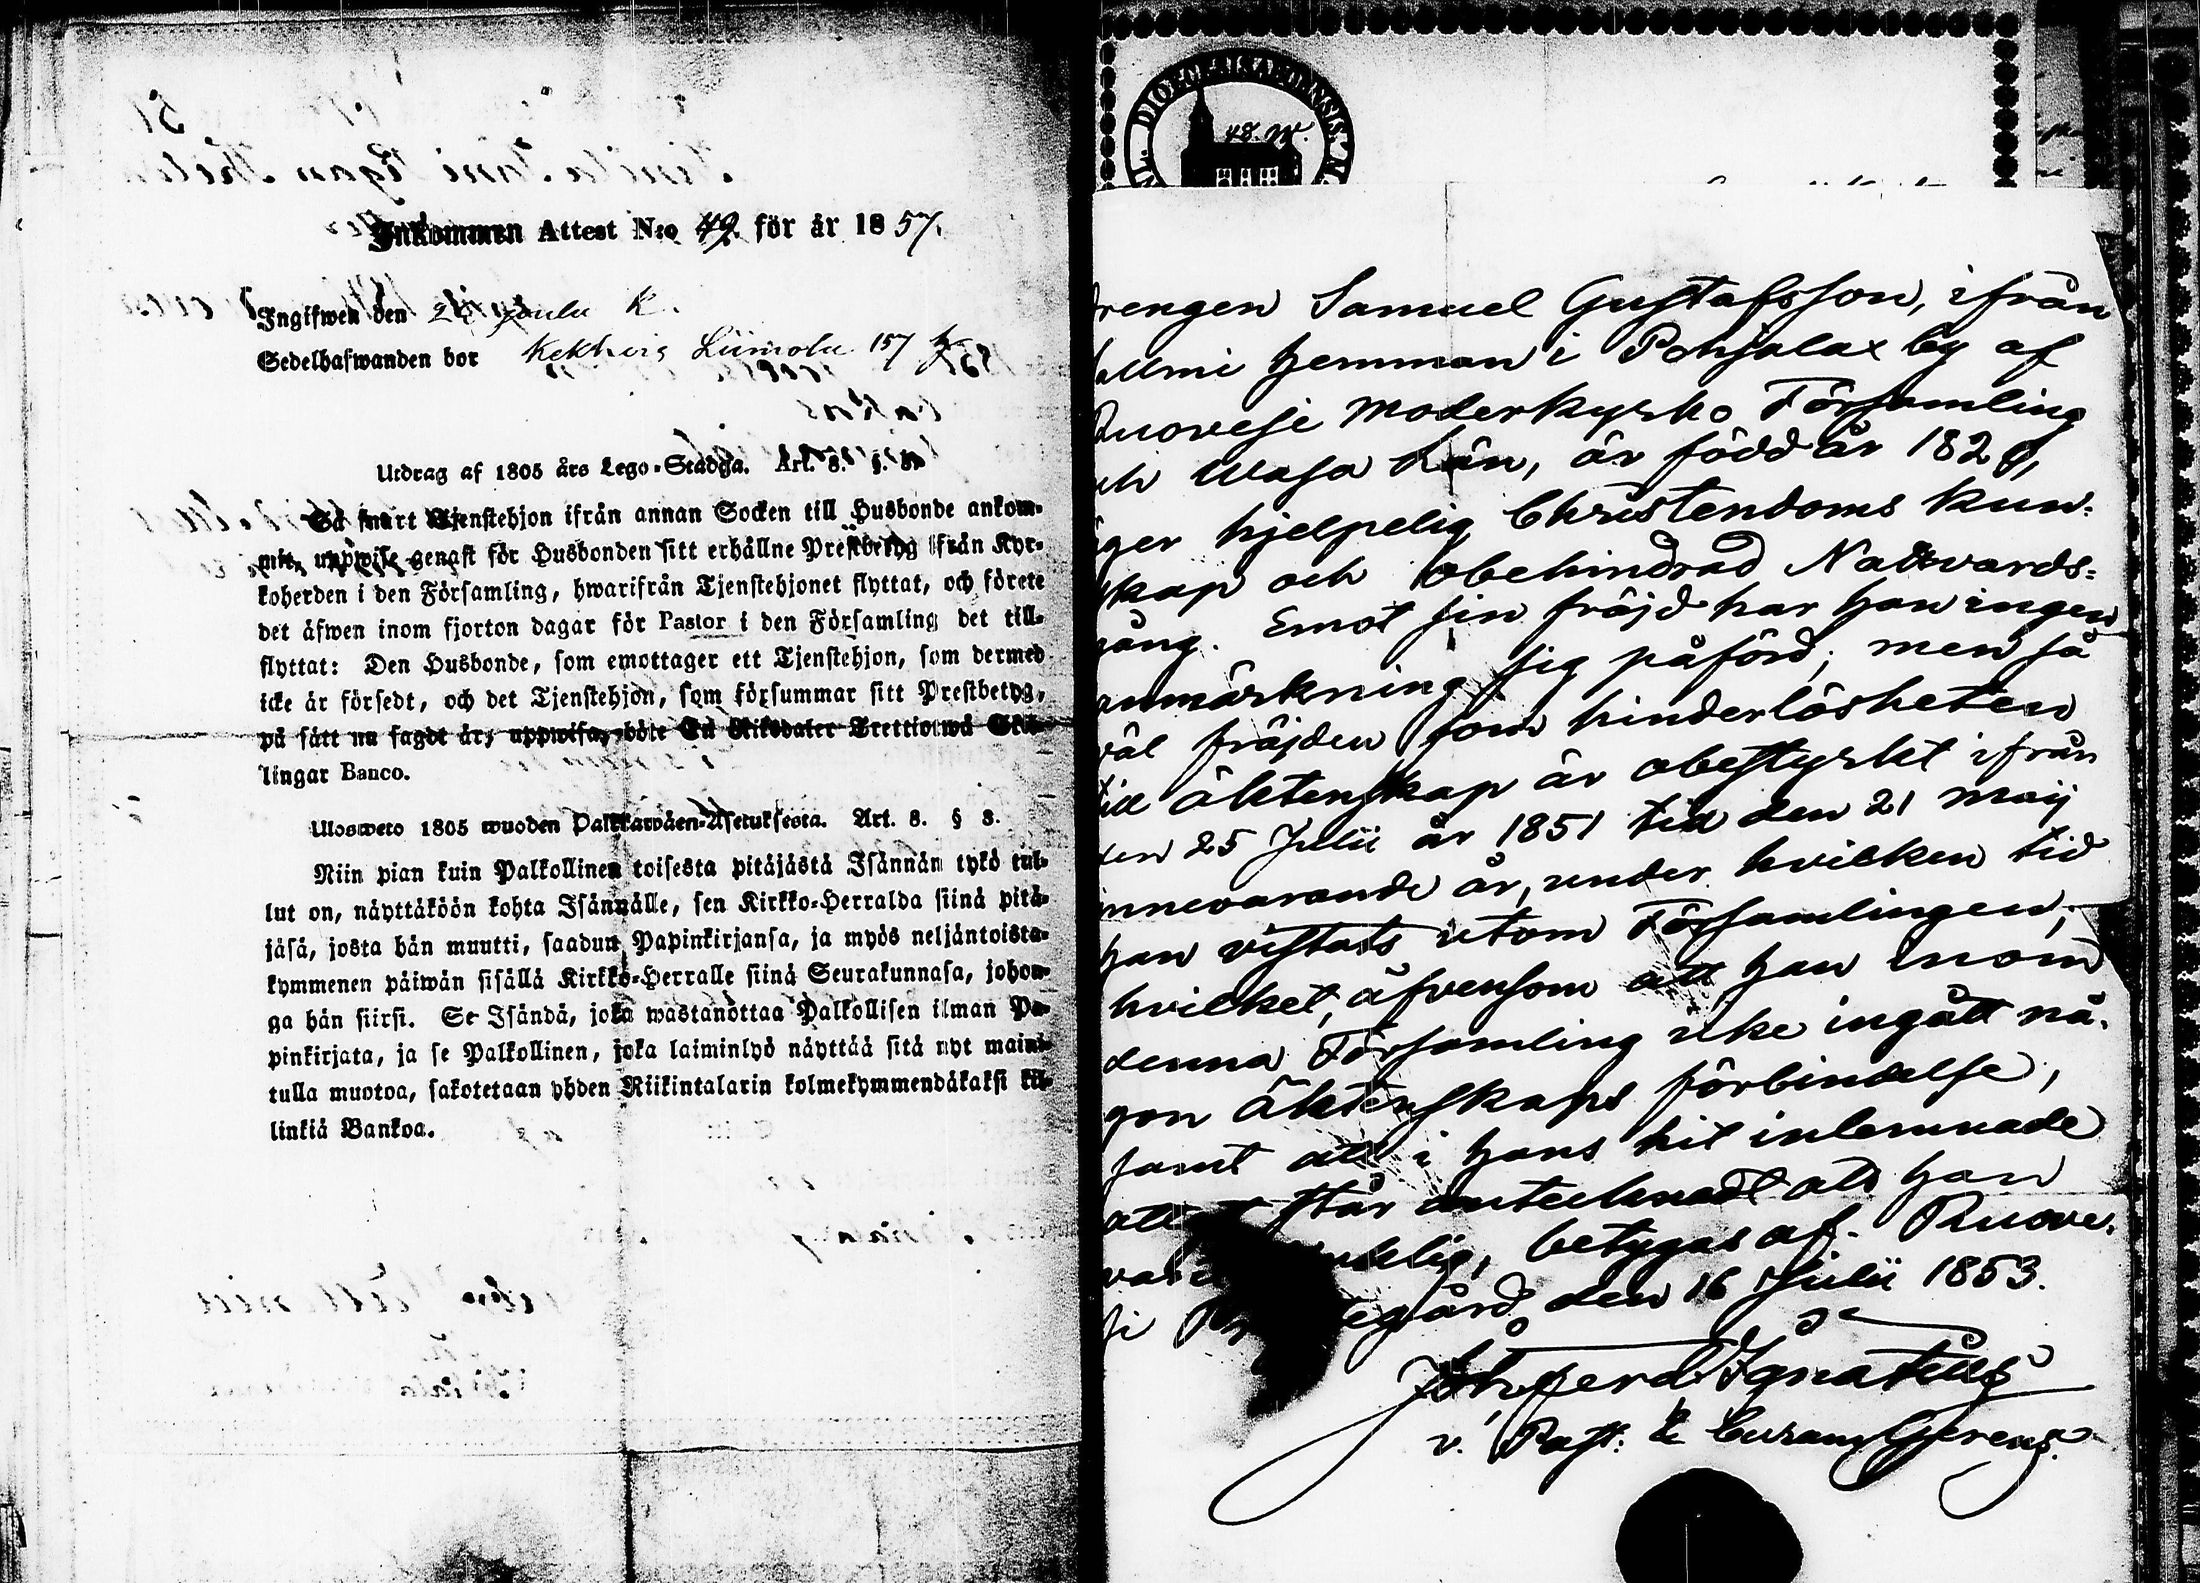 Inkommen Attest N:o 49. för år 1857.
Ingifwen den 26 Joulu K.
Sedelhafwanden bor Liimola 157
Utdrag af 1805 års Lego-Stadga. Art. 8. §. 8.
Så snart Tjenstehjon ifrån annan Socken till Husbonde ankom-
mit, uppwise genast för Husbonden sitt erhållne Prestbetyg ifrån Kyr-
koherden i den Församling, hwarifrån Tjenstehjonet flyttat, och förete
det äfwen inom fjorton dagar för Pastor i den Församling det till-
flyttat: Den Husbonde, som emottager ett Tjenstehjon, som dermed
icke är försedt, och det Tjenstehjon, som försummar sitt Prestbetyg,
på sätt nu sagdt är, uppwisa, böte En Riksdaler Trettiotwå Skil-
lingar Banco.
Ulosweto 1805 wuoden Palkkawäen-Asetuksesta. Art. 8. § 8.
Niin pian kuin Palkollinen toisesta pitäjästä Isännän tykö tul-
lut on, näyttäköön kohta Isännälle, sen Kirkko-Herralda siinä pitä-
jäsä, josta hän muutti, saadun Papinkirjansa, ja myös neljäntoista-
kymmenen päiwän sisällä Kirkko-Herralle siinä Seurakunnasa, johon-
ga hän siirsi. Se Isändä, joka wastanottaa Palkollisen ilman Pa-
pinkirjata, ja se Palkollinen, joka laiminlyö näyttää sitä nyt maini-
tulla muotoa, sakotetaan yhden Riikintalarin kolmekymmendäkaksi kil-
linkiä Bankoa.
48. W.
DIOECE
ENSIS
rengen Samuel Gustafsson, ifrån
allmi Hemman i Pohjalax by af
Ruovesi Moderkyrko Församling
ch Wasa Län, är född år 182
ger hjelpelig Christendoms kun-
skap och obehindrad Nattvards-
gång. Emot sin fräjd har han ingen
anmärkning sig påförd; men så
väl fräjden som hinderlösheten
till äktenskap är obestyrkt ifrån
den 25 Julii år 1851 till den 21 Maij
innevarande år, under hvilken tid
han vistats utom Församlingen;
hvilket, äfvensom att han inom
denna Församling icke ingått nå-
gon äktenskaps förbindelse,
samt att i hans hit inlemnade
står antecknadt att han
betygas af. Ruove-
si den 16 Julii 1853.
Joh Gerd Ignatius
v. Past: & Curam Gerens.